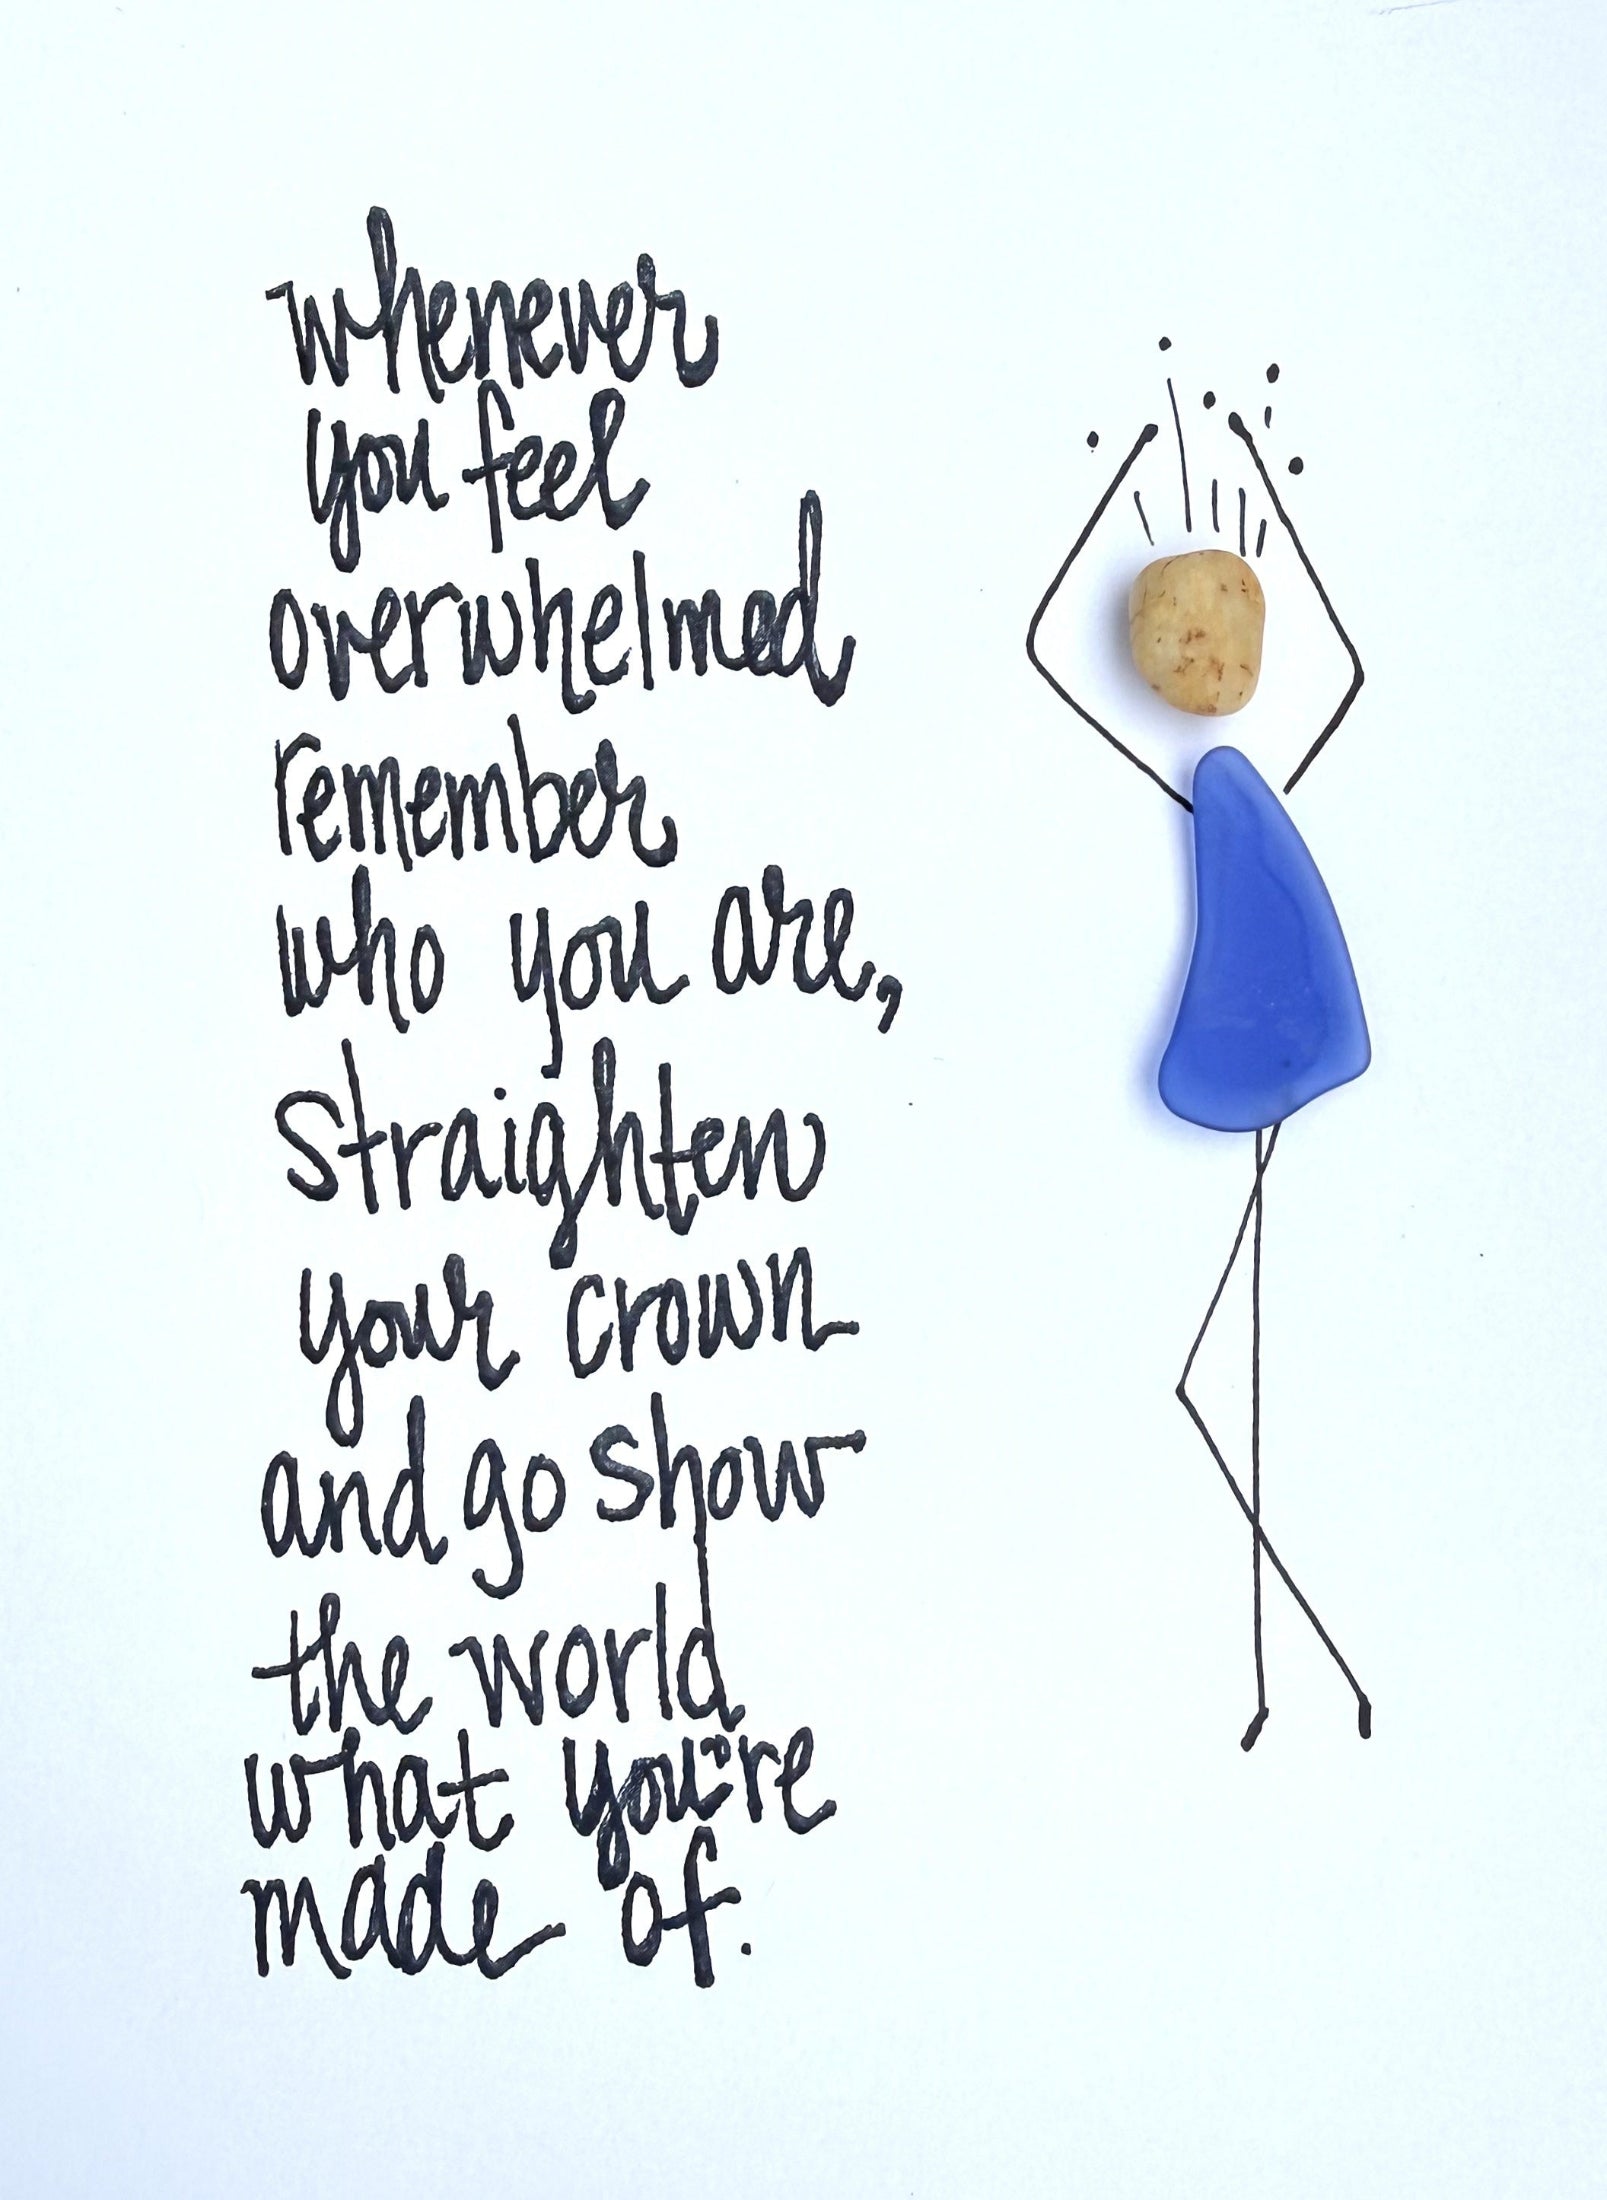 whenever
you feel
overwhelmed
remember
who you are,
straighten
your crown
and go show
the world
what you're
made of.